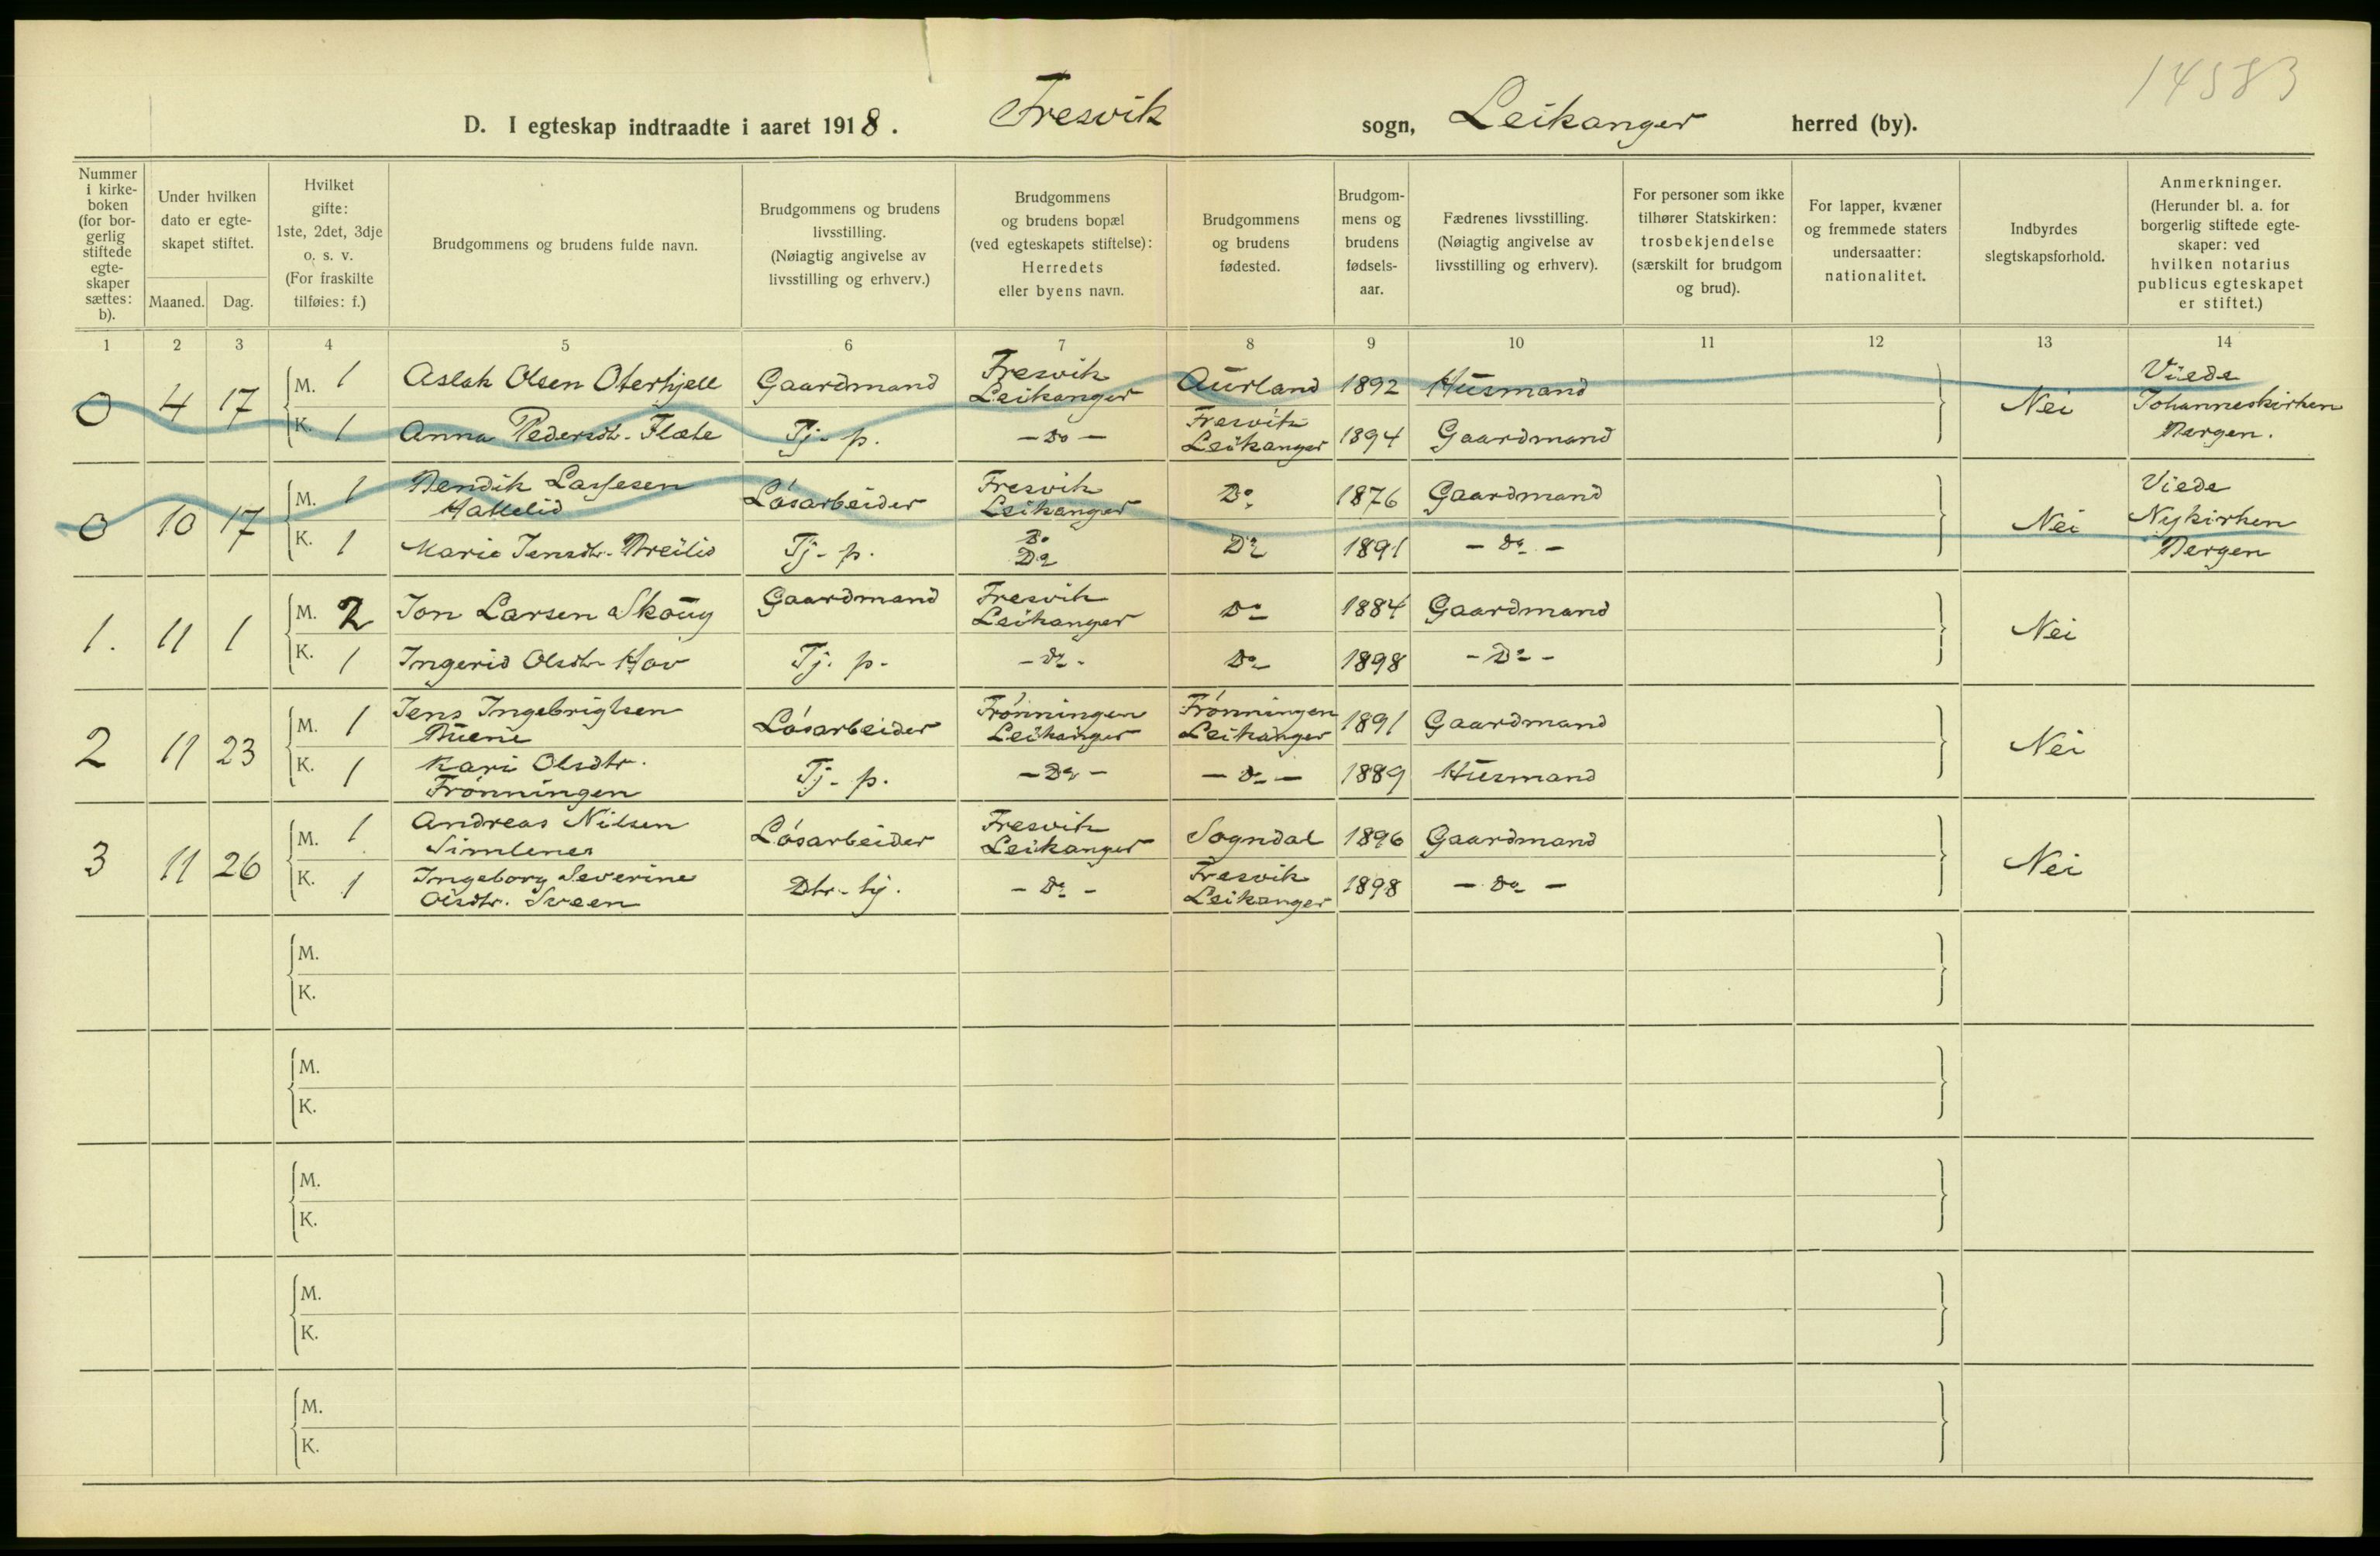 14583
D. I egteskap indtraadte i aaret 1918. Fresvik sogn, Leikanger herred (by).
Nummer i kirke- boken (for bor- gerlig stiftede egte- skaper sættes: b).
Under hvilken dato er egte- skapet stiftet.
Maaned. Dag.
Hvilket gifte: 1ste, 2det, 3dje o. s. v. (For fraskilte tilføies: f.)
Brudgommens og brudens fulde navn.
Brudgommens og brudens livsstilling. (Nøiagtig angivelse av livsstilling og erhverv.)
Brudgommens og brudens bopæl (ved egteskapets stiftelse): Herredets eller byens navn.
Brudgommens og brudens fødested.
Brudgom- mens og brudens fødsels- aar.
Fædrenes livsstilling. (Nøiagtig angivelse av livsstilling og erhverv).
For personer som ikke tilhører Statskirken: trosbekjendelse (særskilt for brudgom og brud).
For lapper, kvæner og fremmede staters undersaatter: nationalitet.
Indbyrdes slegtskapsforhold.
Anmerkninger. (Herunder bl. a. for borgerlig stiftede egte- skaper: ved hvilken notarius publicus egteskapet er stiftet.)
1 2 3 4 5 6 7 8 9 10 11 12 13 14
0 4 17 M. 1 Aslak Olsen Oterhjell Gaardmand Fresvik Leikanger Aurland 1892 Husmand Nei Viede Johanneskirken Bergen.
K. 1 Anna Pedersdt. Flæte Tj. p. - Do - Fresvik Leikanger 1894 Gaardmand
0 10 17 M. 1 Bendik Lassesen Hallelid Løsarbeider Fresvik Leikanger Do 1876 Gaardmand Nei Viede Nykirken Bergen
K. 1 Marie Jensdtr. Breilid Tj. p. Do Do Do 1891 - Do -
1. 11 1 M. 2 Jon Larsen Skoug Gaardmand Fresvik Leikanger Do 1884 Gaardmand Nei
K. 1 Ingerid Olsdtr Hov Tj. p. - Do - Do 1898 - Do -
2 11 23 M. 1 Jens Ingebrigtsen Buene Løsarbeider Frønningen Leikanger Frønningen Leikanger 1891 Gaardmand Nei
K. 1 Kari Olsdtr. Frønningen Tj. p. - Do - - Do - 1889 Husmand
3 11 26 M. 1 Andreas Nilsen Simlenes Løsarbeider Fresvik Leikanger Sogndal 1896 Gaardmand Nei
K. 1 Ingeborg Severine Olsdtr. Sveen Dtr. tj. - Do - Fresvik Leikanger 1898 - Do -
M.
K.
M.
K.
M.
K.
M.
K.
M.
K.